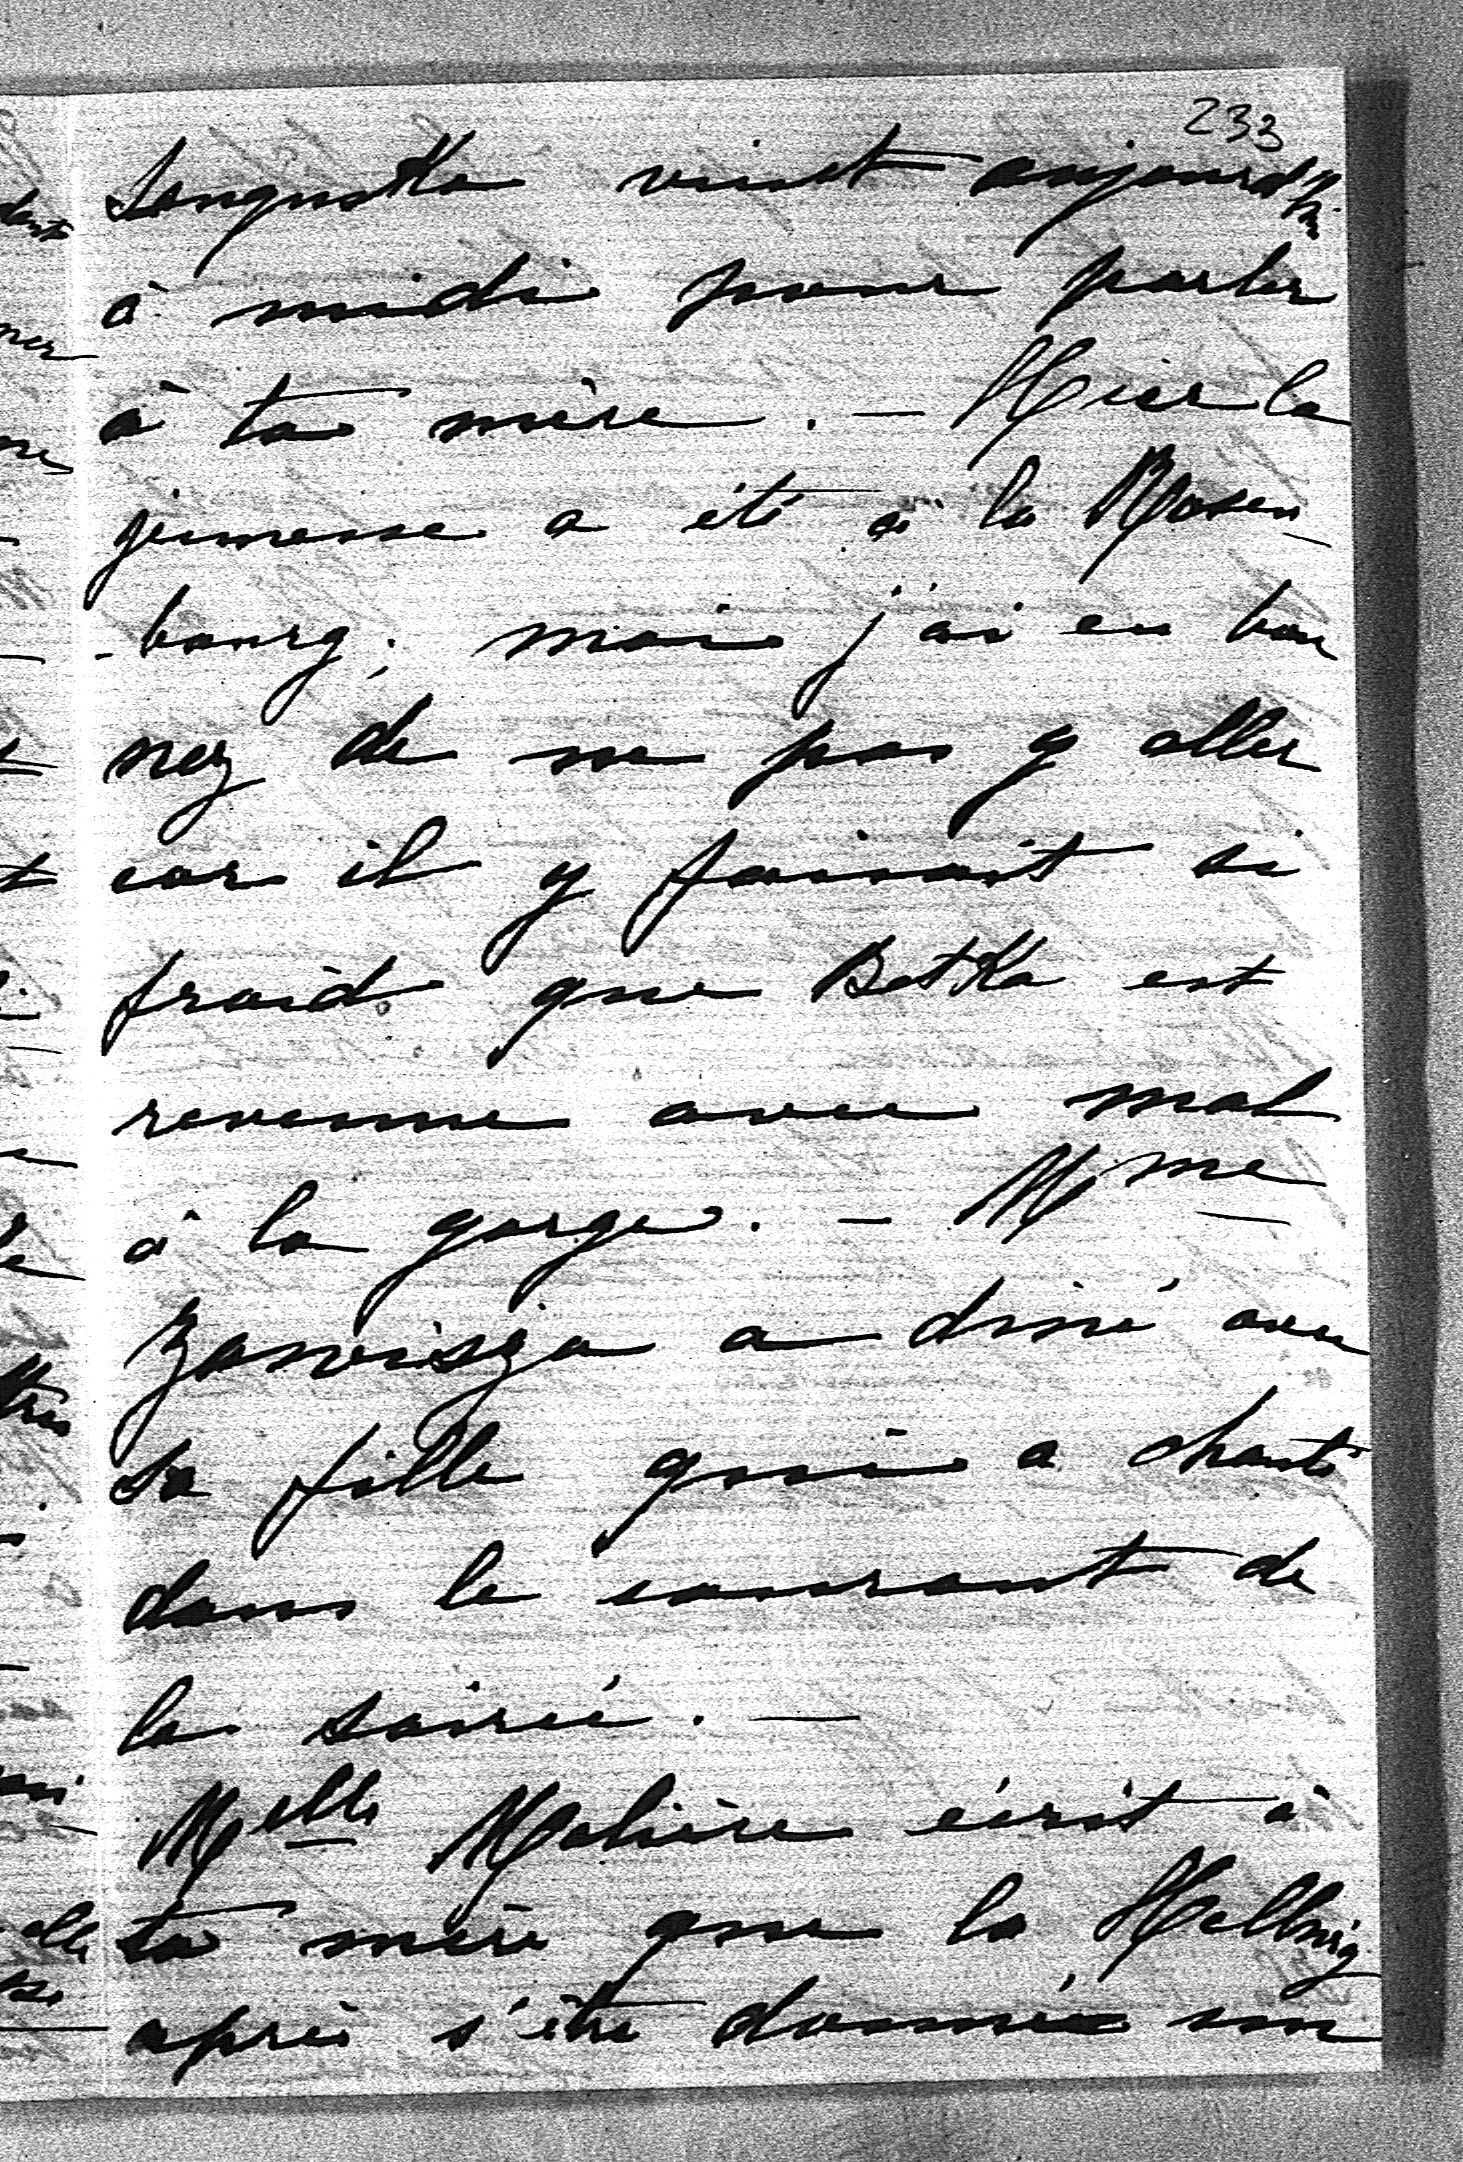 233
Sanguska vient aujourd'hui
à midi pour parler
à ta mère. — Hier la
jeunesse a été à la Rosen
-bourg; mais j'ai eu bon
nez de ne pas y aller
car il y faisait si
froid que Betka est
revenue avec mal
à la gorge. — Mme
Zawisza a diné avec
sa fille qui a chanté
dans le courant de
la soirée. —
Melle Molière écrit à
ta mère que la Helbig
après s'être donnée un